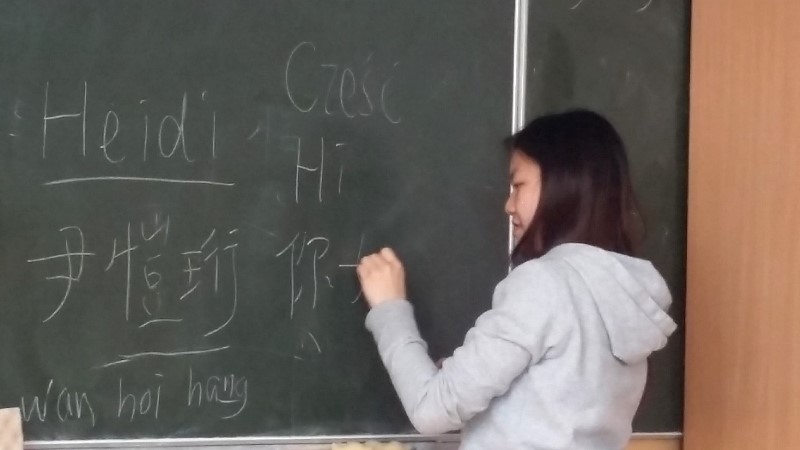 Heidi
尹愷珩
wan hoi hang
Cześć
Hi
你